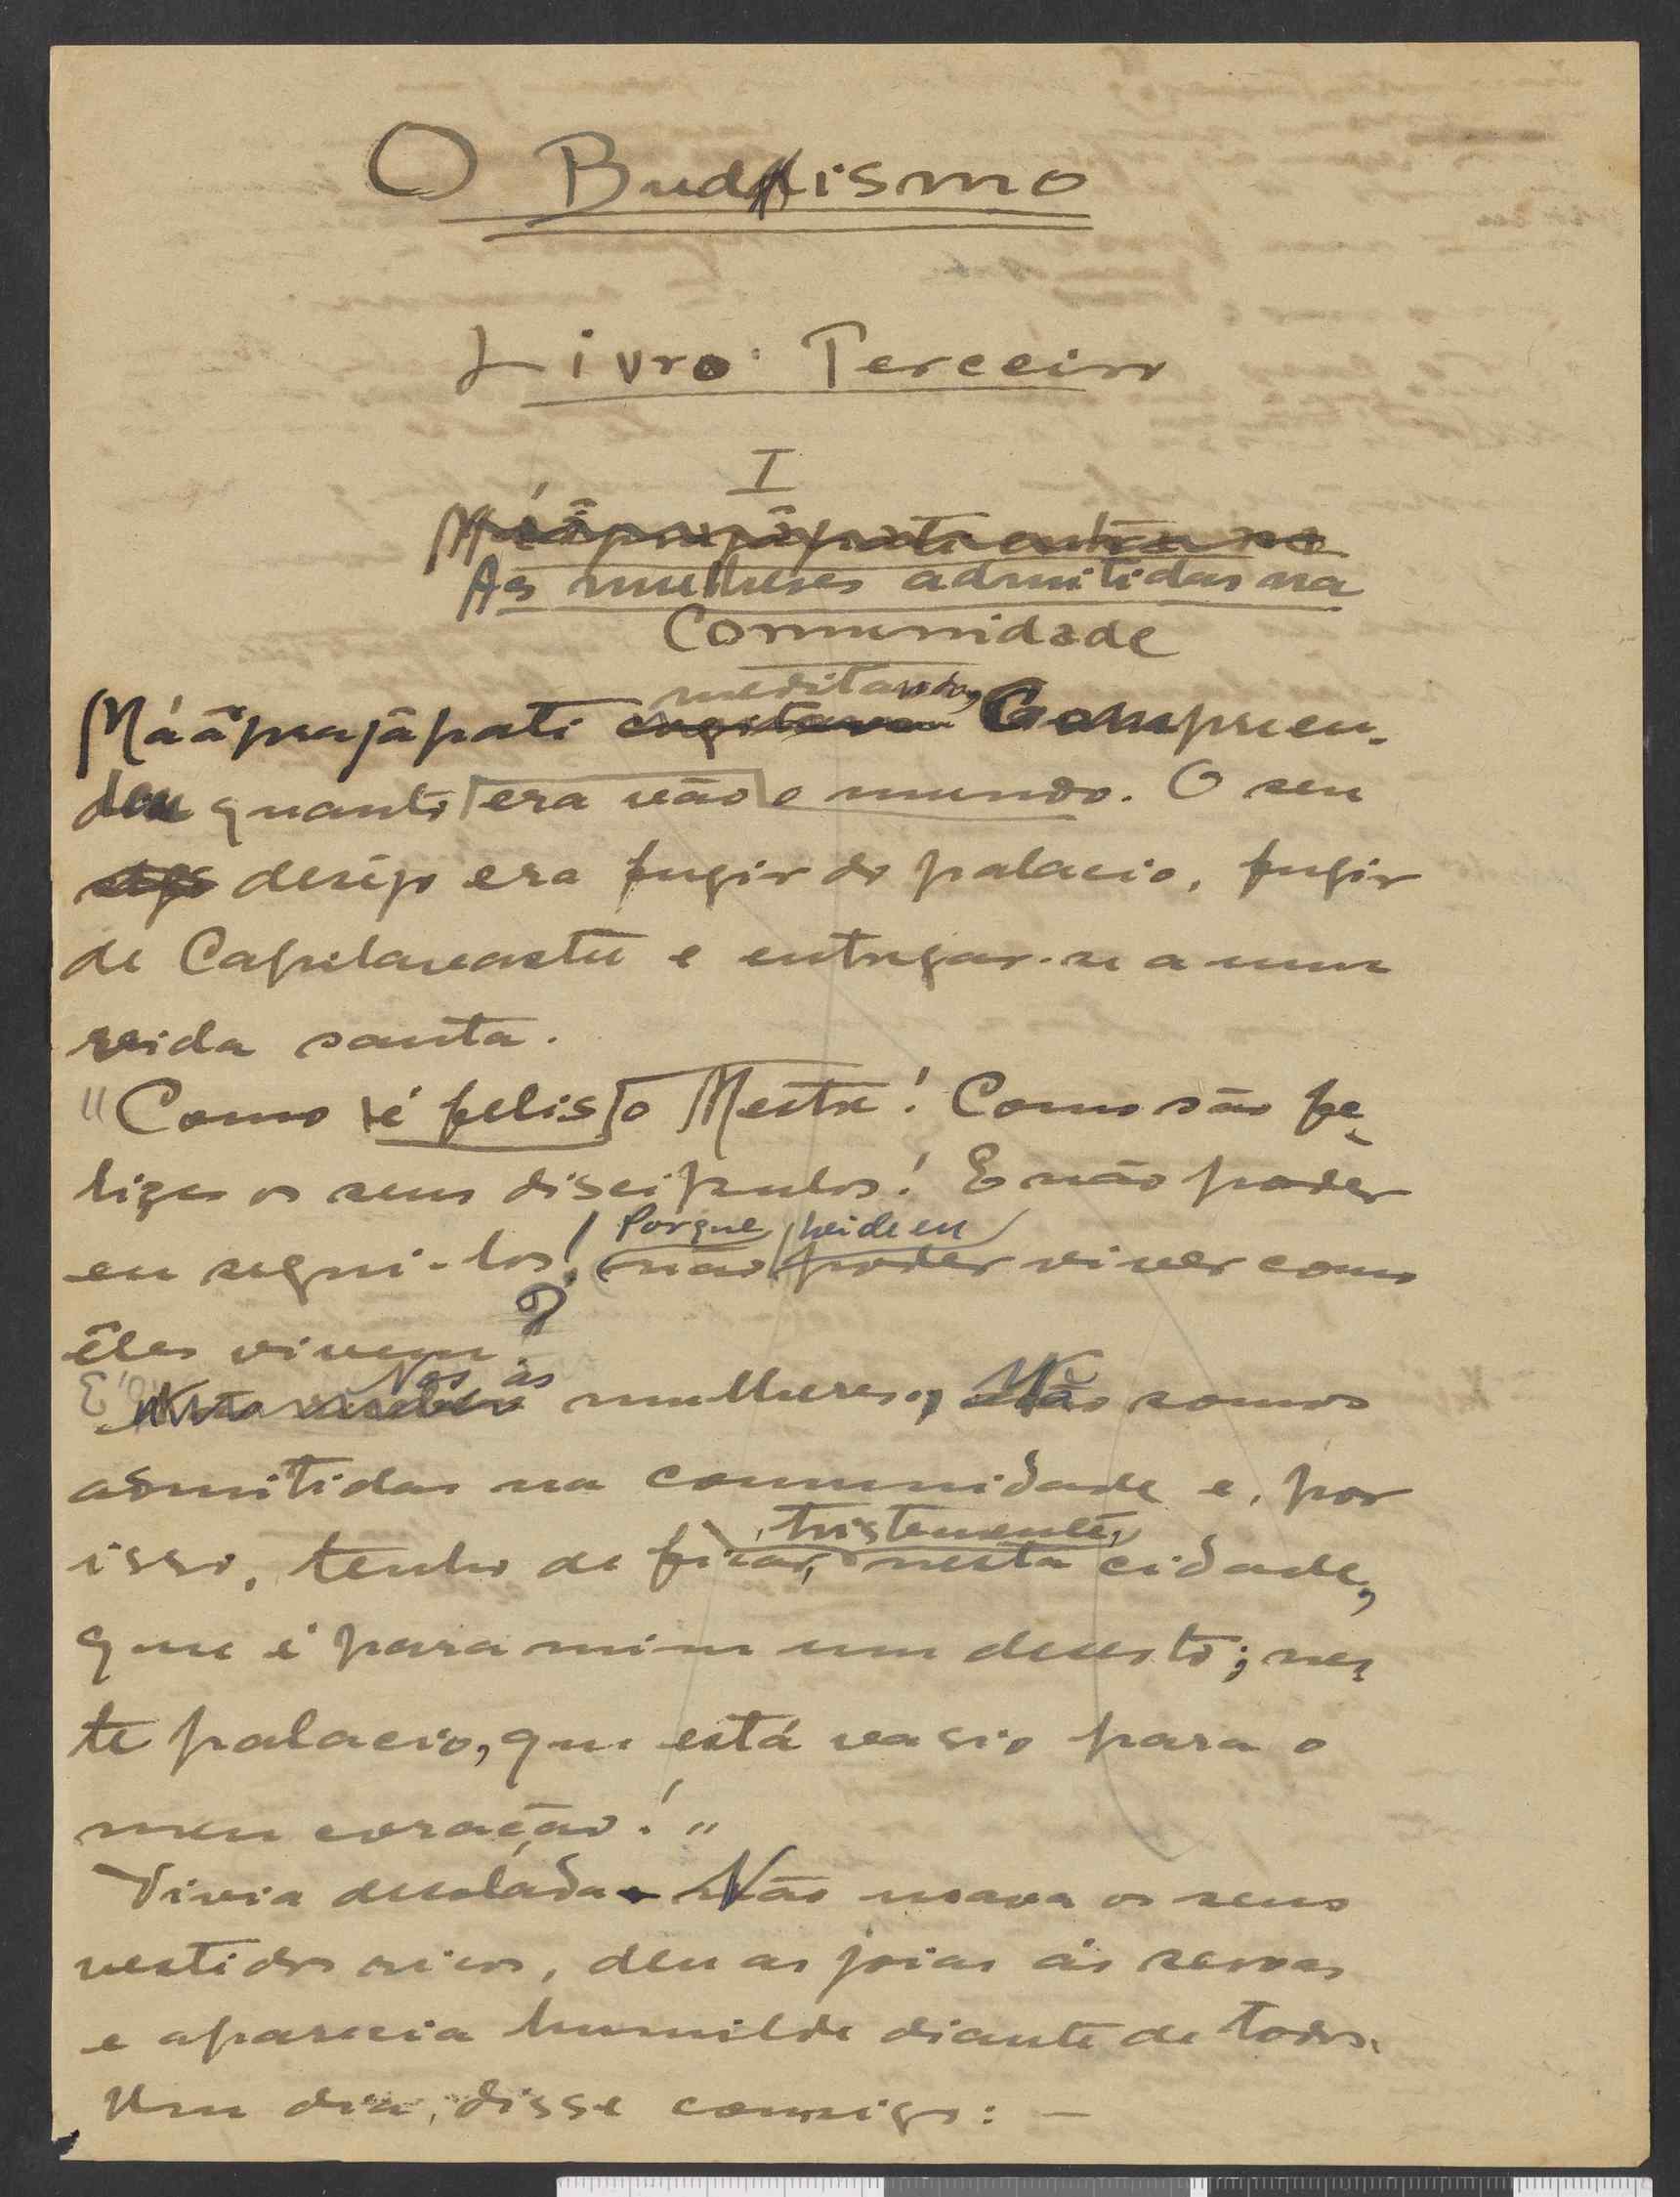 O Budismo
Livro Terceiro
I
Máâprajâpati entra na
As mulheres admitidas na
Comunidade
meditando,
Máâprajâpati cogitava Compreen-
deu quanto era vão o mundo. O seu
desejo era fugir do palacio, fugir
de Capilavastu e entregar-se a uma
vida santa.
"Como é felis o Mestre! Como são fe-
lizes os seus discipulos! E não poder
Porque heide eu
eu segui-los! não poder viver como
êles vivem?
Nos as
E mulheres, Não somos
admitidas na comunidade e, por
tristemente,
isso, tenho de ficar, nesta cidade,
que é para mim um deserto; nes-
te palacio, que está vasio para o
meu coração!"
Vivia desolada. Não usava os seus
vestidos ricos, deu as joias ás servas
e aparecia humilde diante de todos.
Um dia, disse comsigo: —